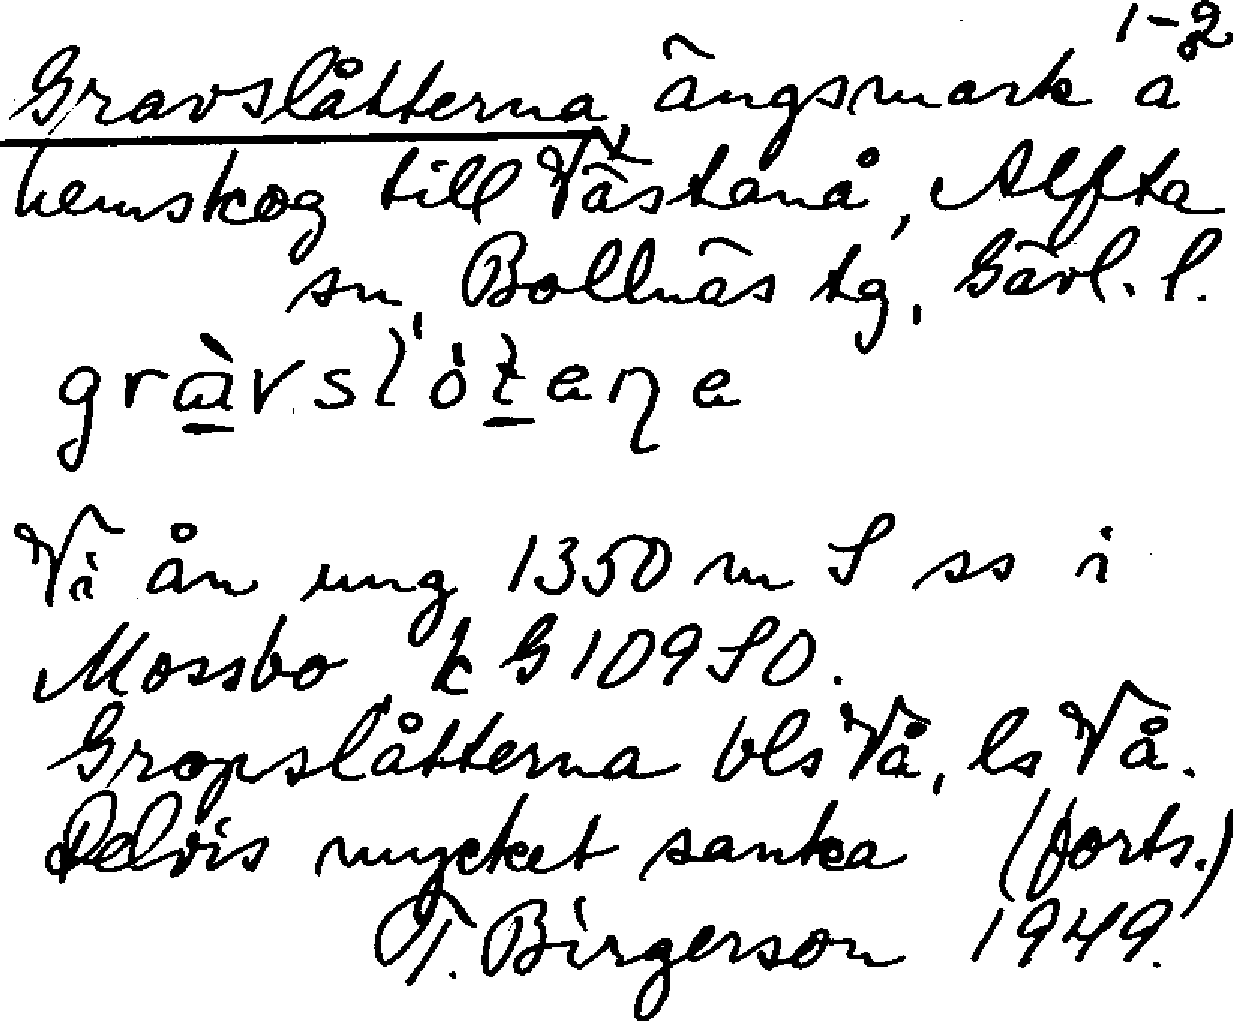 1-2
Gravslåtterna, ängsmark å
hemskog till Västanå, Alfta
sn, Bollnäs tg, Gävl. l.
Vi ån ung 1350 m S ss i
Mossbo k G 109 SO.
Gropslåtterna bls Vå, ls Vå.
Delvis mycket sanka (forts.)
T. Birgerson 1949.